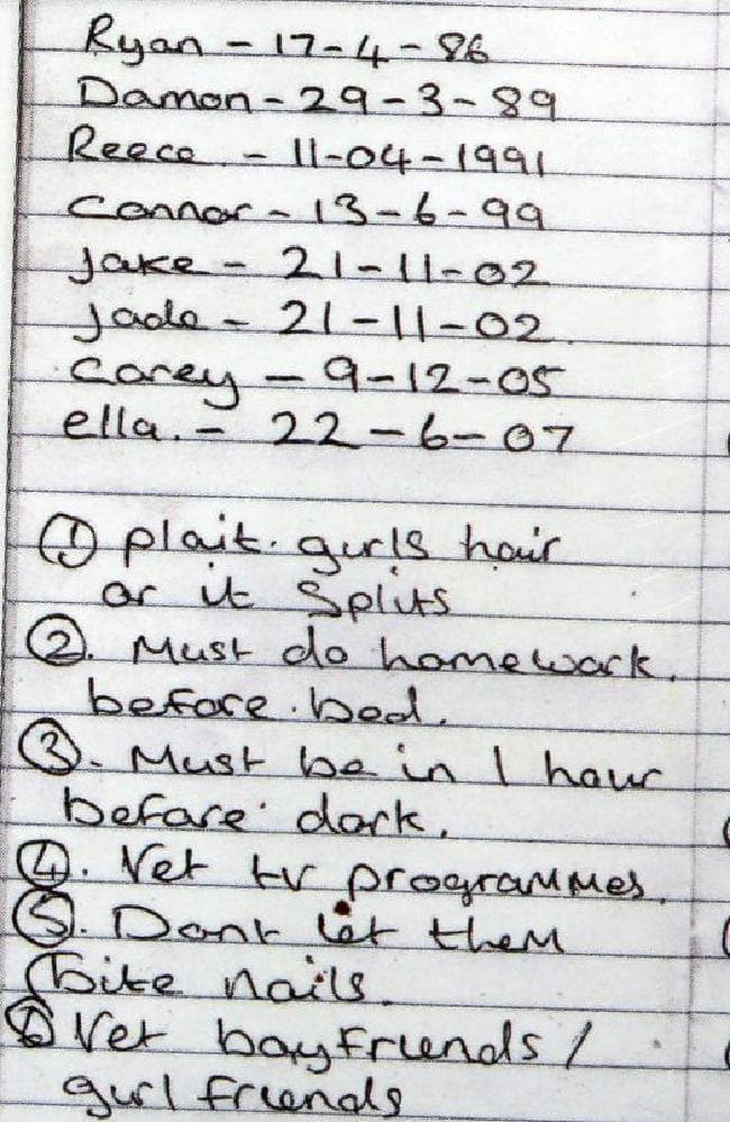 Ryan - 17-4-86
Damon - 29-3-89
Reece. - 11-04-1991
Connor - 13-6-99
Jake - 21-11-02
Jade - 21-11-02.
Corey - 9-12-05
ella. - 22-6-07
① plait. girls hair
or it Splits
②. Must do homework.
before. bed.
③. Must be in 1 hour
before dark.
④. Vet tv programmes.
⑤. Dont let them
bite nails.
⑥ Vet boyfriends /
girlfriends